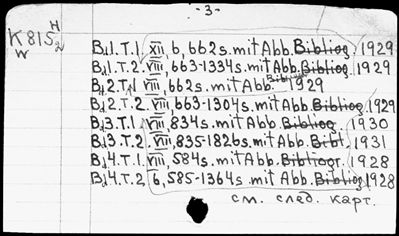 -3-
K 815 H/2
W
Bd1.T.1. XII, 6, 662s. mit Abb. Bibliog. 1929
Bd1.T.2. VIII, 663-1334s. mit Abb. Bibliog. 1929
Bd2.T.1 VIII, 662s. mit Abb. Bibliog. 1929
Bd2.T.2. VIII, 663-1304s. mit Abb. Bibliog. 1929
Bd3.T.1. VIII, 834s. mit Abb. Bibliog. 1930
Bd3.T.2. VIII, 835-1826s. mit Abb. Bibl. 1931
Bd4.T.1. VIII, 584s. mit Abb. Bibliogr. 1928
Bd4.T.2. 6, 585-1364s. mit Abb. Bibliog. 1928
см. след. карт.